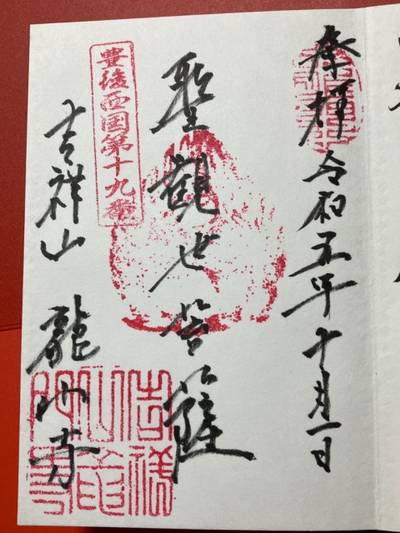 奉拝 令和五年十月一日
聖觀世菩薩
豊後西国第十九番
吉祥山 龍池寺
吉祥
山龍
池寺